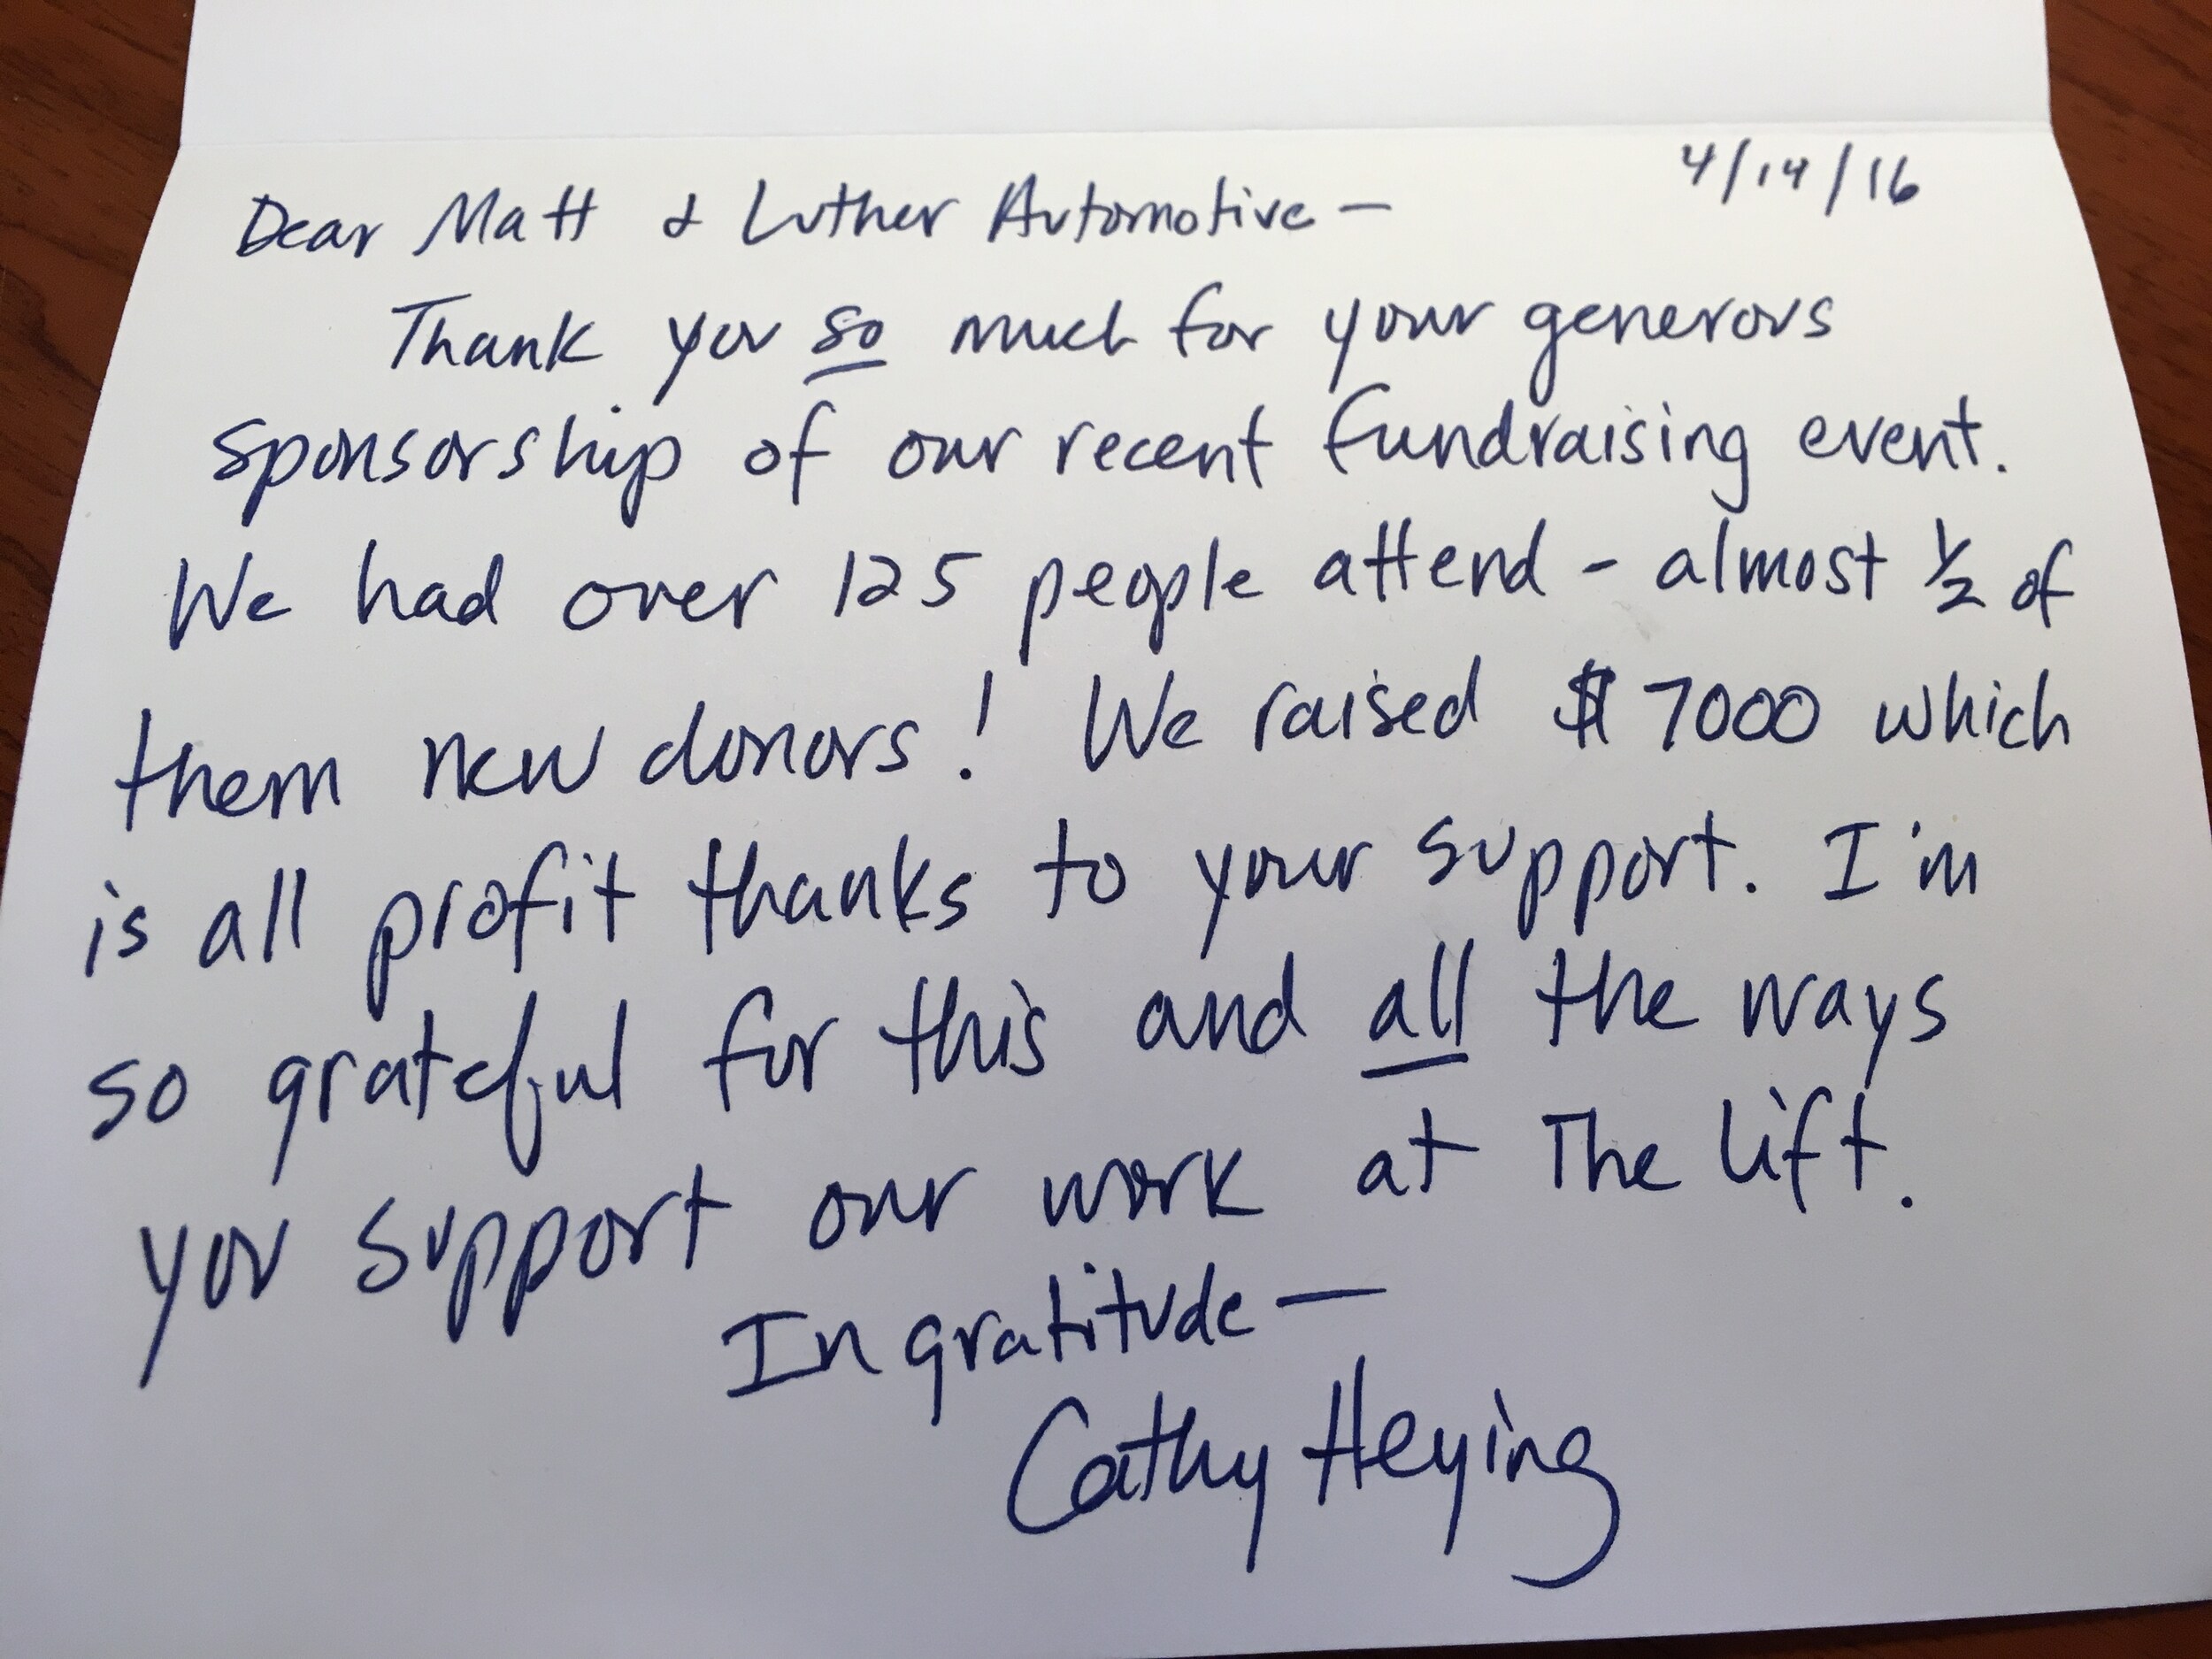 4/14/16
Dear Matt & Luther Automotive —
Thank you so much for your generous
sponsorship of our recent fundraising event.
We had over 125 people attend - almost ½ of
them new donors! We raised $7000 which
is all profit thanks to your support. I'm
so grateful for this and all the ways
you support our work at The Lift.
In gratitude —
Cathy Heying